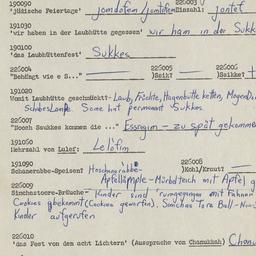 190090
'Jüdische Feiertage' jomdofem / jontofem 226003 Einzahl: jontef
191030
'wir haben in der Laubhütte gegessen' wir ham in der Sukk
190100
'das Laubhüttenfest' Sukkes
226004 226005 226006
"Behängt wie e S..." )Seik? )Seikef
191020
Womit Laubhütte geschmückt? - Laub, Früchte, Hagenbutte ketten, MogenDo
Some hat permanent Sukkes.
226007
"Hooch Sukkes kommen die ..." Essrogim - zu spät gekomme
191050
Mehrzahl von Lulef: Lelofim
191090 226008
Schanerabbe-Speisen? Hoschagrabbe- )Kohl/Kraut?
Apfellämple - Mürbdteich mit Apfel g
226009
Simchastoore-Bräuche - Kinder sind rumgegangen mit Fahnen
Cookies gbekommt (Cookies geworfn). Simchas Tora Ball -
Kinder aufgerufen
226010
'das Fest von den acht Lichtern' (Aussprache von Chanukkah) Chanu